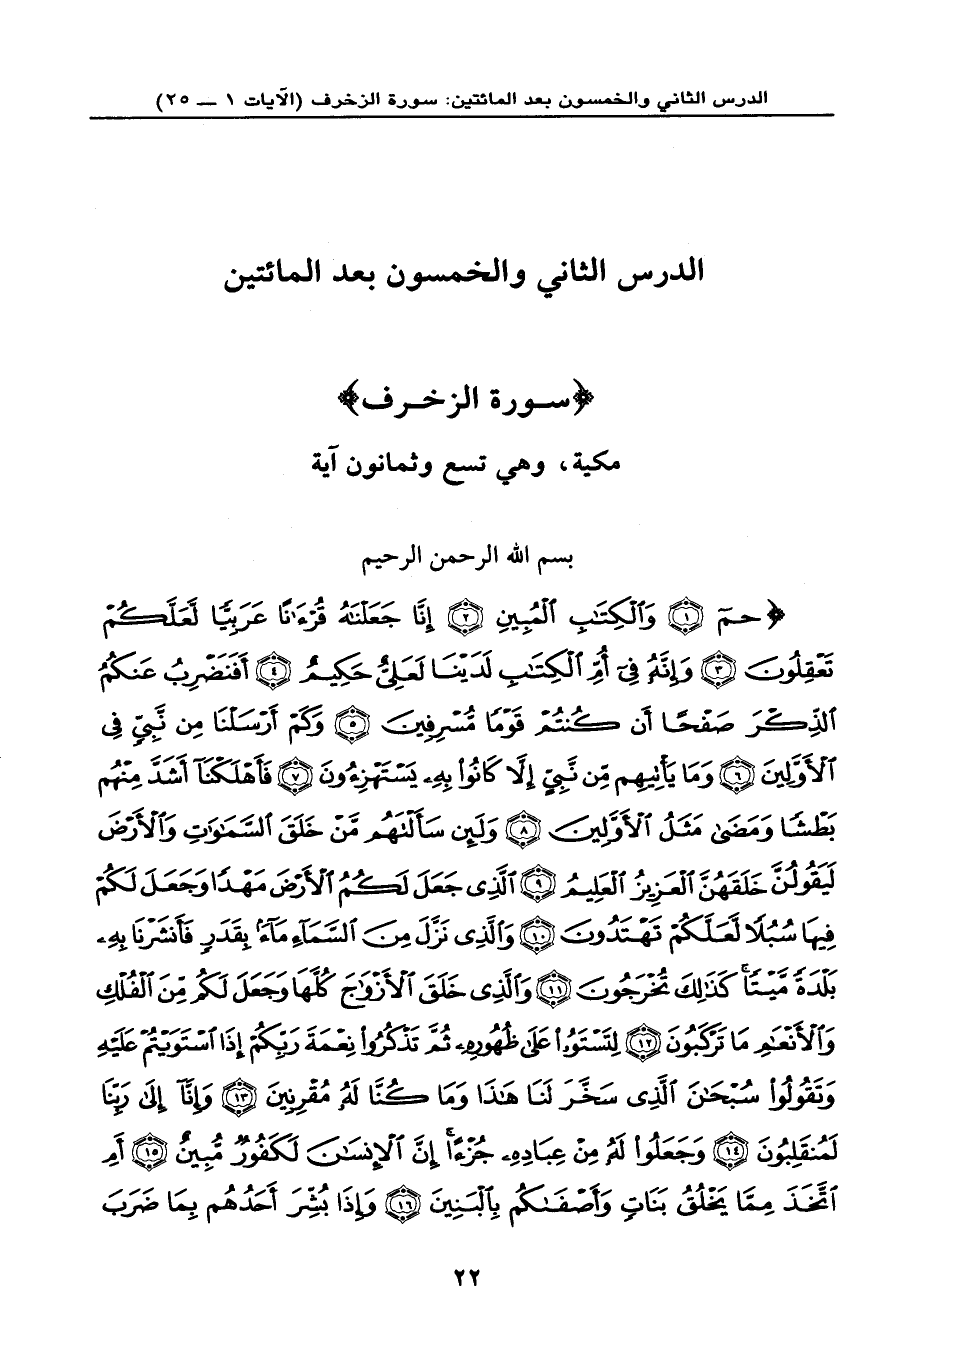 الدرس الثاني والخمسون بعد المائتين: سورة الزخرف (الآيات ١ — ٢٥)
الدرس الثاني والخمسون بعد المائتين
﴿سورة الزخرف﴾
مكية، وهي تسع وثمانون آية
بسم الله الرحمن الرحيم
﴿حمٓ ١ وَٱلْكِتَٰبِ ٱلْمُبِينِ ٢ إِنَّا جَعَلْنَٰهُ قُرْءَٰنًا عَرَبِيًّا لَّعَلَّكُمْ
تَعْقِلُونَ ٣ وَإِنَّهُۥ فِىٓ أُمِّ ٱلْكِتَٰبِ لَدَيْنَا لَعَلِىٌّ حَكِيمٌ ٤ أَفَنَضْرِبُ عَنكُمُ
ٱلذِّكْرَ صَفْحًا أَن كُنتُمْ قَوْمًا مُّسْرِفِينَ ٥ وَكَمْ أَرْسَلْنَا مِن نَّبِىٍّ فِى
ٱلْأَوَّلِينَ ٦ وَمَا يَأْتِيهِم مِّن نَّبِىٍّ إِلَّا كَانُوا۟ بِهِۦ يَسْتَهْزِءُونَ ٧ فَأَهْلَكْنَآ أَشَدَّ مِنْهُم
بَطْشًا وَمَضَىٰ مَثَلُ ٱلْأَوَّلِينَ ٨ وَلَئِن سَأَلْتَهُم مَّنْ خَلَقَ ٱلسَّمَٰوَٰتِ وَٱلْأَرْضَ
لَيَقُولُنَّ خَلَقَهُنَّ ٱلْعَزِيزُ ٱلْعَلِيمُ ٩ ٱلَّذِى جَعَلَ لَكُمُ ٱلْأَرْضَ مَهْدًا وَجَعَلَ لَكُمْ
فِيهَا سُبُلًا لَّعَلَّكُمْ تَهْتَدُونَ ١٠ وَٱلَّذِى نَزَّلَ مِنَ ٱلسَّمَآءِ مَآءًۢ بِقَدَرٍ فَأَنشَرْنَا بِهِۦ
بَلْدَةً مَّيْتًا ۚ كَذَٰلِكَ تُخْرَجُونَ ١١ وَٱلَّذِى خَلَقَ ٱلْأَزْوَٰجَ كُلَّهَا وَجَعَلَ لَكُم مِّنَ ٱلْفُلْكِ
وَٱلْأَنْعَٰمِ مَا تَرْكَبُونَ ١٢ لِتَسْتَوُۥا۟ عَلَىٰ ظُهُورِهِۦ ثُمَّ تَذْكُرُوا۟ نِعْمَةَ رَبِّكُمْ إِذَا ٱسْتَوَيْتُمْ عَلَيْهِ
وَتَقُولُوا۟ سُبْحَٰنَ ٱلَّذِى سَخَّرَ لَنَا هَٰذَا وَمَا كُنَّا لَهُۥ مُقْرِنِينَ ١٣ وَإِنَّآ إِلَىٰ رَبِّنَا
لَمُنقَلِبُونَ ١٤ وَجَعَلُوا۟ لَهُۥ مِنْ عِبَادِهِۦ جُزْءًا ۚ إِنَّ ٱلْإِنسَٰنَ لَكَفُورٌ مُّبِينٌ ١٥ أَمِ
ٱتَّخَذَ مِمَّا يَخْلُقُ بَنَاتٍ وَأَصْفَىٰكُم بِٱلْبَنِينَ ١٦ وَإِذَا بُشِّرَ أَحَدُهُم بِمَا ضَرَبَ
٢٢